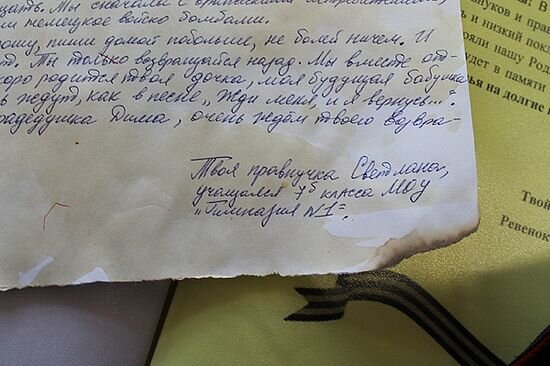 щать. Мы сначала с
немецкое войско бомбами.
пиши домой побольше, не болей ничем. И
Ты только возвращайся назад. Мы вместе от-
скоро родится твоя дочка, моя будущая бабушка
ждут, как в песне „Жди меня, и я вернусь...".
прадедушка Дима, очень ждём твоего возвра-
Твоя правнучка Светлана,
учащаяся 7Б класса МОУ
„Гимназия №1".
нуков и прав
ь и низкий пок
ряли нашу Род
удет в памяти
на долгие
Твой
Ревенок